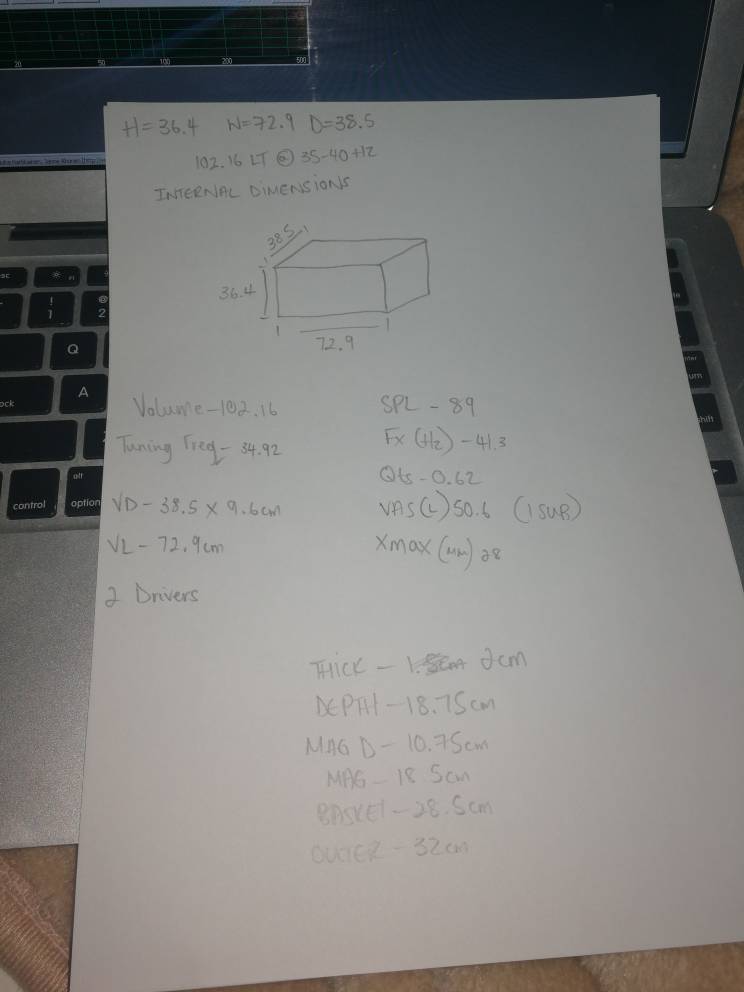 20 50 100 200 500
H=36.4 W=72.9 D=38.5
102.16 LT @ 35-40Hz
INTERNAL DIMENSIONS
38.5
36.4
72.9
Volume-102.16
Tuning Freq- 34.92
VD- 38.5 x 9.6cm
VL- 72.9cm
2 Drivers
SPL - 89
Fx (Hz) - 41.3
Qts - 0.62
VAS(L) 50.6 (1 SUB)
Xmax (MM) 28
THICK - 2cm
DEPTH - 18.75cm
MAG D - 10.75cm
MAG - 18.5cm
BASKET - 28.5cm
OUTER - 32cm
esc
F1
!
1
@
2
Q
A
control
alt
option